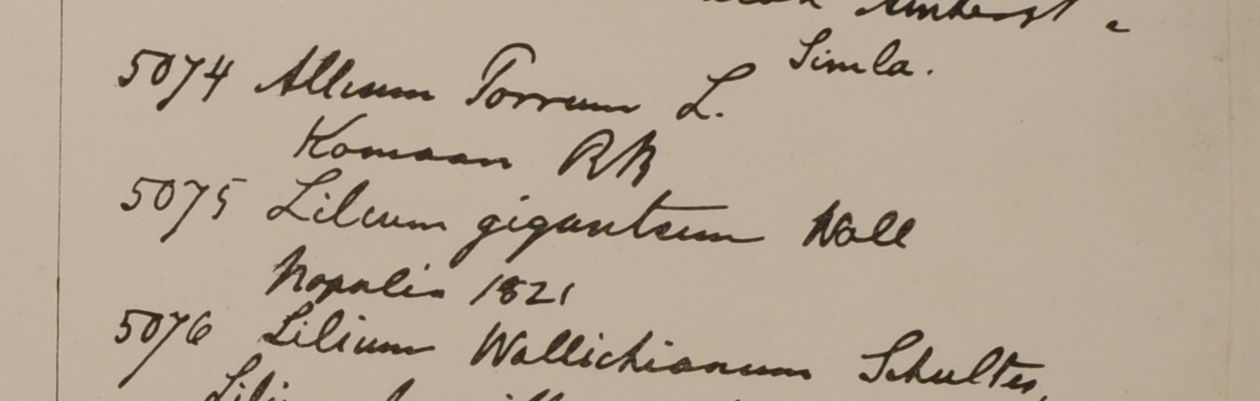 Amherst.
Simla.
5074 Allium Porrum L.
Komaon RB
5075 Lilium giganteum Wall
Napalia 1821
5076 Lilium Wallichianum Schultes,